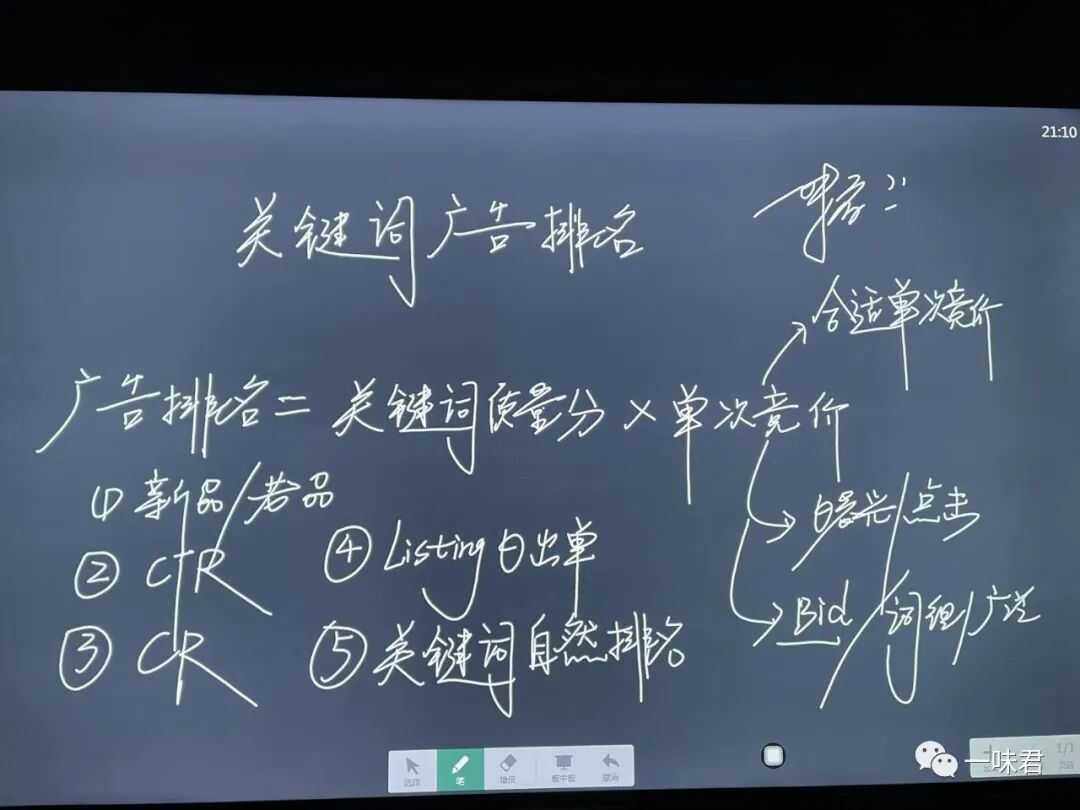 21:10
关键词广告排名
合适单次竞价
广告排名 = 关键词质量分 × 单次竞价
① 新品/老品
② CTR
③ CR
④ Listing日出单
⑤ 关键词自然排名
日曝光/点击
Bid/词组/广泛
选择 笔 擦板 板中板 撤消
1/1
一味君